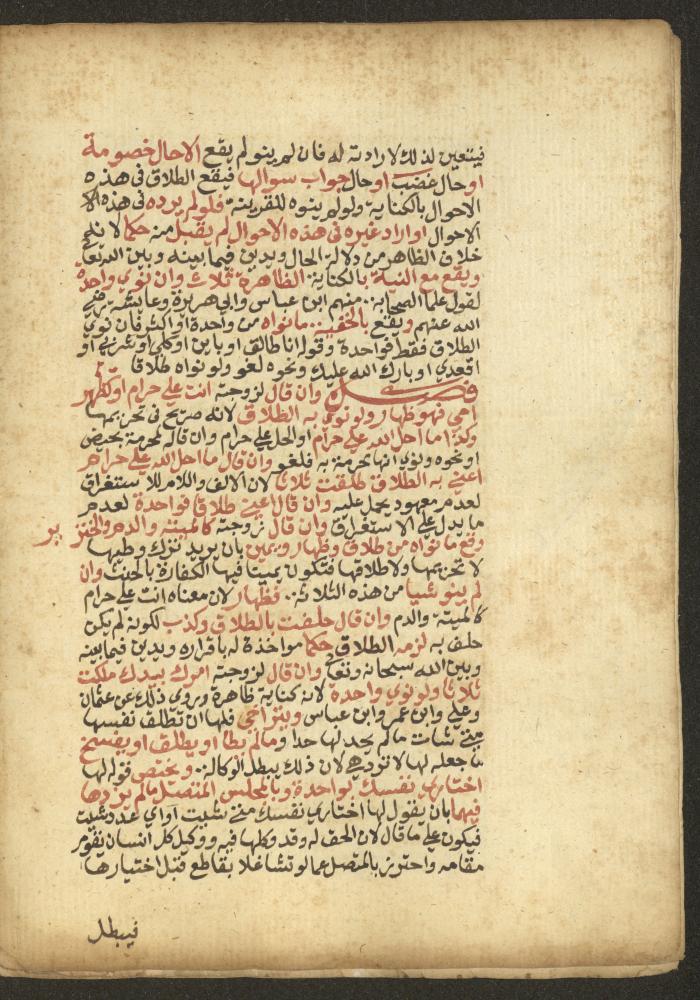 فيتعين لذلك لارادته له فان لم ينو لم يقع الا حال خصومة
او حال غضب او حال جواب سوالها فيقع الطلاق في هذه
الاحوال بالكناية ولو لم ينوه للقرينة فلو لم يرده في هذه الا
الاحوال او اراد غيره في هذه الاحوال لم يقبل منه حكما لانه
خلاف الظاهر من دلالة الحال ويدين فيما بينه وبين الله تعا
ويقع مع النية بالكناية الظاهرة ثلاث وان نوى واحدة
لقول علما الصحابة منهم ابن عباس وابي هريرة وعايشة رضي
الله عنهم ويقع بالخفية ما نواه من واحدة او اكثر فان نوى
الطلاق فقط فواحدة وقوله انا طالق او باين او كلي او شربي او
اقعدي او بارك الله عليك ونحوه لغو ولو نواه طلاقا
فصل وان قال لزوجته انت علي حرام او كظهر
امي فهو ظهار ولو نوى به الطلاق لانه صريح في تحريمها
وكذا ما احل الله علي حرام او الحل علي حرام وان قاله لمحرمة بحيض
او نحوه ونوى انها محرمة به فلغو وان قال ما احل الله علي حرام
اعني به الطلاق طلقت ثلاثا لان الالف واللام للاستغراق
لعدم معهود يحمل عليه وان قال اعني طلاقا فواحدة لعدم
ما يدل علي الاستغراق وان قال زوجته كالميتة والدم والخنز ير
وقع ما نواه من طلاق وظهار ويمين بان يريد ترك وطيها
لا تحريمها ولا طلاقها فتكون يمينا فيها الكفارة بالحنث وان
لم ينو شيا من هذه الثلاثة فظهار لان معناه انت علي حرام
كالميتة والدم وان قال حلفت بالطلاق وكذب لكونه لم يكن
حلف به لزمه الطلاق حكما مواخذة له باقراره ويدين فيما بينه
وبين الله سبحانه وتعا وان قال لزوجته امرك بيدك ملكت
ثلاثا ولو نوى واحدة لانه كناية ظاهرة وروي ذلك عن عثمان
وعلي وابن عمر وابن عباس ويتراخي فلها ان تطلق نفسها
متي شات ما لم يحد لها حدا وما لم يطا او يطلق او يفسخ
ما جعله لها لا ترد هي لان ذلك يبطل الوكالة ويختص قوله لها
اختاري نفسك بواحدة وبالمجلس المتصل ما لم يزدها
فيهما بان يقول لها اختاري نفسك متي شيت او اي عدد شيت
فيكون علي ما قال لان الحق له وقد وكلها فيه ووكيل كل انسان يقوم
مقامه واحترز بالمتصل عما لو تشاغلا بقاطع قبل اختيارها
فيبطل